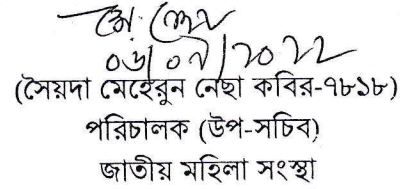 ০৬/০৭/২০২২
(সৈয়দা মেহেরুন নেছা কবির-৭৮১৮)
পরিচালক (উপ-সচিব)
জাতীয় মহিলা সংস্থা